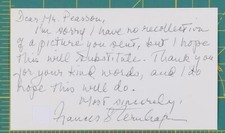 Dear Mr. Pearson,
I'm sorry I have no recollection
of a picture you sent, but I hope
this will substitute. Thank you
for your kind words, and I do
hope this will do.
Most sincerely,
Frances Sternhagen